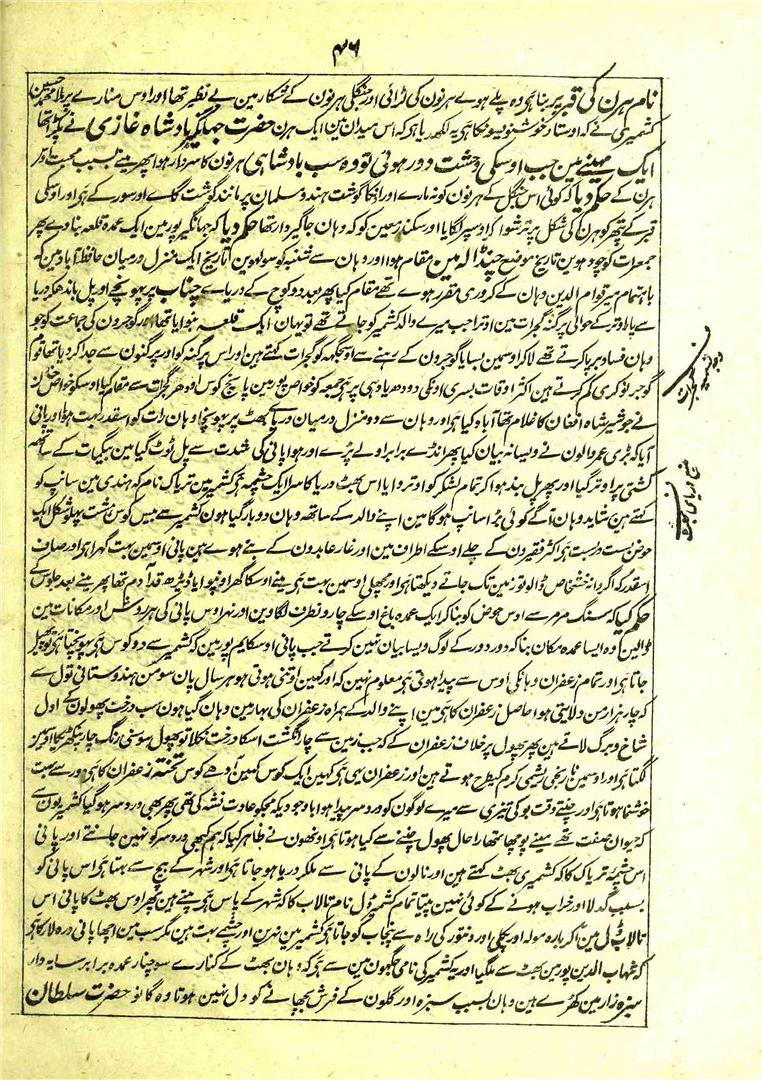 ۴۶
نام ہرن کی قبر پر بنا ہی وہ پلے ہوے ہرنون کی لڑائی اور جنگلی ہرنون کے شکار مین بے نظیر تھا اور اوس منارے پر ملا محمد حسین
کشمیری نے کہ اوستاد خوشنویسونکا ہی یہ لکھدیا ہو کہ اس میدان مین ایک ہرن حضرت جہانگیر بادشاہ غازی نے پکڑا تھا
ایک مہینے مین جب اوسکی وحشت دور ہوئی تو وہ سب بادشاہی ہرنون کا سردار ہوا پھر مینے بسبب محبت
ہرن کے حکم دیا کہ کوئی اس جنگل کے ہرنون کو نہ مارے اور انکا گوشت ہندو مسلمان پر مانند گوشت گاے اور سور کے ہی اور اوسکی
قبر کے پتھر کو ہرن کی شکل پر ترشوا کر اوسپر لگایا اور سکندر معین کو کہ وہان جاگیردار تھا حکم دیا کہ جہانگیر پور مین ایک عمدہ قلعہ بناوے پھر
جمعرات کو چودھوین تاریخ موضع چنڈالہ مین مقام ہوا اور وہان سے شنبہ کو سولھوین تاریخ ایک منزل درمیان حافظ آباد مین کہ
باہتمام میر قوام الدین وہان کے کروری مقرر ہوے تھے مقام کیا پھر بعد دو کوچ کے دریاے چناب پر پہونچے اور پل باندھکر دریا
سے پار اوتر کے حوالی پرگنہ گجرات مین اوترا جب میرے والد کشمیر کو جاتے تھے تو یہان ایک قلعہ بنوایا تھا اور گوجرون کی جماعت کو جو
وہان فساد برپا کرتے تھے لاکر اوسمین بسایا گوجرون کے رہنے سے اوسجگہ کو گجرات کہتے ہین اور اس پرگنہ کو اور پرگنون سے جدا کر دیا تھا قوم
گوجر نوکری کم کرتے ہین اکثر اوقات بسری اونکی دودھ دہی پر ہی جمعہ کو خواص پور مین پانچ کوس اودھر گجرات سے مقام کیا اوسکو خواص خان
نے جو شیر شاہ افغان کا غلام تھا آباد کیا ہی اور وہان سے دو منزل درمیان دریاے بھٹ پر پہونچا وہان رات کو اسقدر ہوا اور پانی
آیا کہ بڑی عمر والون نے ویسا نہ بیان کیا پھر انڈے برابر اولے پڑے اور ہوا پانی کی شدت سے پل ٹوٹ گیا مین بیگمات کے ساتھ
کشتی پر اوتر گیا اور پھر پل بند ہوا کہ تمام لشکر کو اوتروایا اس بھٹ دریا کا سرا ایک چشمہ ہی کشمیر مین ترناک نام کہ ہندی مین سانپ کو
کہتے ہین شاید وہان آگے کوئی بڑا سانپ ہوگا مین اپنے والد کے ساتھ وہان دو بار گیا ہون کشمیر سے بیس کوس ہشت پہلو شکل ایک
حوض سا درست ہی اکثر فقیرون کے چلے اوسکے اطراف مین اور غار عابدون کے بنے ہوے ہین پانی اوسمین بہت گہرا ہی اور صاف
اسقدر کہ اگر دانہ خشخاش ڈالو تو زمین تک جاتے دیکھتا ہی اور مچھلی اوسمین بہت ہی مینے اوسکا گہراؤ نپوایا ڈیڑھ قد آدم تھا پھر مینے بعد جلوس کے
حکم کیا کہ سنگ مرمر سے اوس حوض کو بناکر ایک عمدہ باغ اوسکے چارونطرف لگاوین اور نہر اوس پانی کی ہر روش اور مکانات مین
ڈالین وہ ایسا عمدہ مکان بنا کہ دور دور کے لوگ ویسا بیان نہین کرتے جب پانی اوسکا پم پور مین کہ کشمیر سے دو کوس ہی پہونچتا ہی تو پھیل
جاتا ہی اور تمام زعفران وہانکی اوس سے پیدا ہوتی ہی معلوم نہین کہ اور کہین اوتنی ہوتی ہو ہر سال پانسو من ہندوستانی تول سے
کہ چار ہزار من ولایتی ہوا حاصل زعفران کا ہی مین اپنے والد کے ہمراہ زعفران کی بہار مین وہان گیا ہون سب درخت پھولون کے اول
شاخ و برگ لاتے ہین پھر پھول برخلاف زعفران کے کہ جب زمین سے چار انگشت اسکا درخت نکلا تو پھول سوسنی رنگ چار پنکھڑیکا آویز
لگتا ہی اور اوسمین نارنجی ریشمی کرم کیطرح ہوتے ہین اور زعفران یہی ہی کہین ایک کوس کہین آدھے کوس تختہ زعفران کا ہی دور سے بہت
خوشنما ہوتا ہی اور چنتے وقت بو کی تیزی سے میرے لوگون کو درد سر پیدا ہوا باوجودیکہ مجکو عادت نشہ کی تھی پھر بھی درد سر ہوگیا کشمیریون سے
کہ حیوان صفت تھے مینے پوچھا تمھارا حال پھول چننے سے کیا ہوتا ہی اونھون نے ظاہر کیا کہ ہم کبھی درد سر کو نہین جانتے اور پانی
اس چشمہ ترناک کا کہ کشمیری بھٹ کہتے ہین اور نالون کے پانی سے ملکر دریا ہو جاتا ہی اور شہر کے بیچ سے بہتا ہی اس پانی کو
بسبب گدلا اور خراب ہونے کے کوئی نہین پیتا تمام کشمیر ڈل نام تالاب کا کہ شہر کے پاس ہی پیتے ہین پھر اوس بھٹ کا پانی اس
تالاب ڈل مین آکر بارہ مولہ اور پکلی اور دنتور کی راہ سے پنجاب کو جاتا ہی کشمیر مین نہرین اور چشمے بہت ہین مگر سب مین اچھا پانی درہ لار کا ہی
کہ شہاب الدین پور مین بھٹ سے ملگیا اور یہ کشمیر کی نامی جگہون مین سے ہی کہ وہان بھٹ کے کنارے سو چنار عمدہ برابر سایہ دار
سبزہ زار مین کھڑے ہین وہان بسبب سبزہ اور گلون کے فرش بچھانے کو دل نہین ہوتا وہ گانو حضرت سلطان
وجہ تسمیہ گجرات
منبع دریای بھٹ